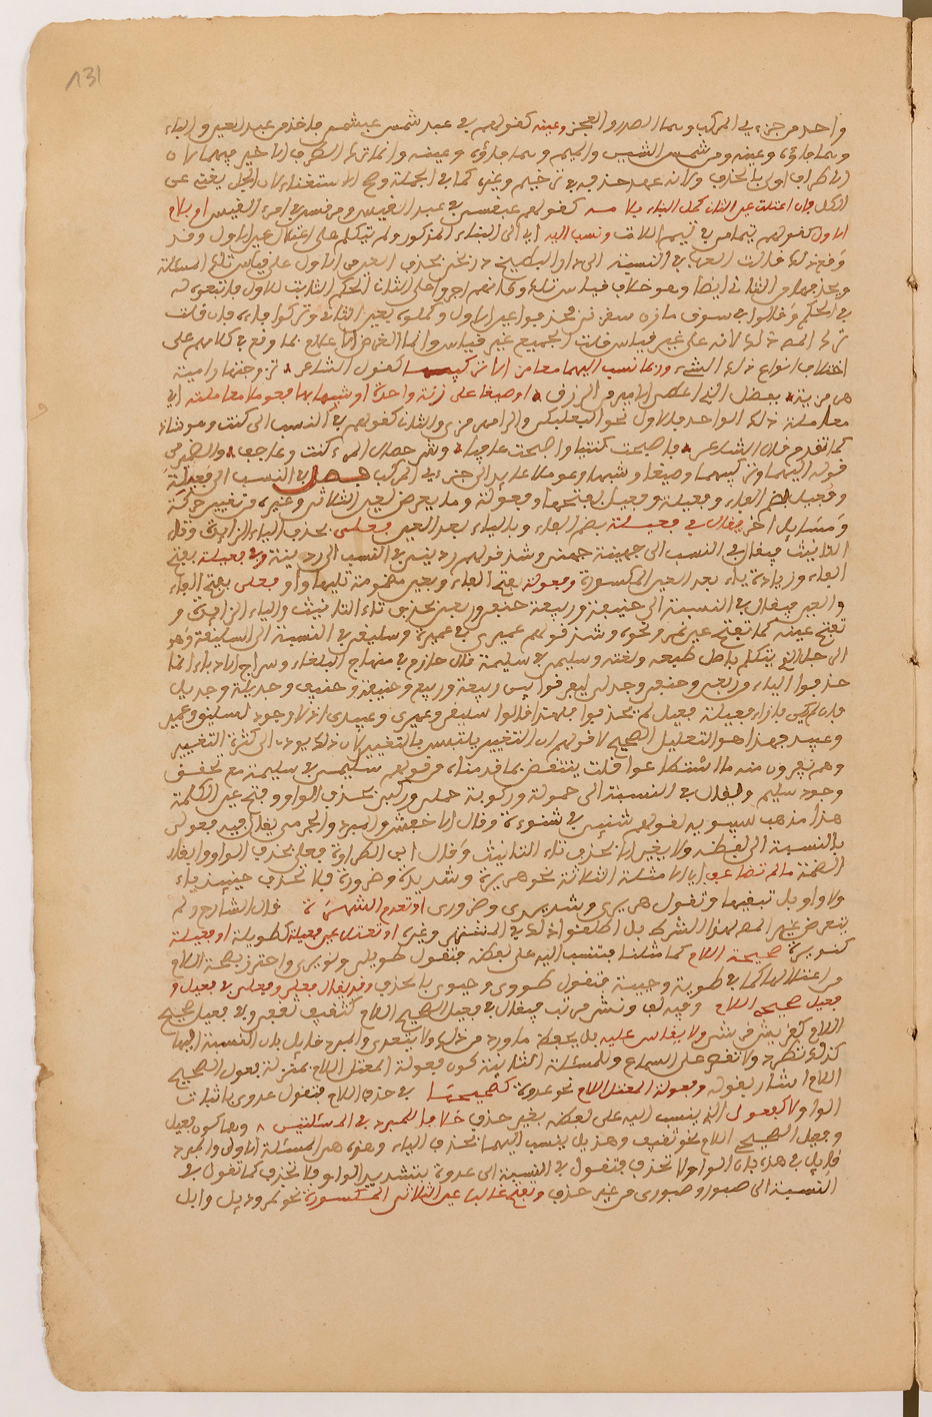 131
واحد من جزءي المركب وهما الصدر والعجز وعينه كقولهم في عبد شمس عبشمي فاخذ من عبد العين والباء
وهما فاؤه وعينه ومن شمس الشين والميم وهما فاؤه وعينه وانما ترك الطرف الاخير منهما لان
الاطراف اولى بالحذف ولانه عهد حذفه في ترخيم وغيره كما في الجملة وصح الاستغناء لان الجل يغني عن
الكل فان اعتلت عين الثاني كمل البناء بلامه كقولهم عبقسي في عبد القيس ومرقسي في امرئ القيس او بلام
الاول كقولهم تيملي في تيم اللات ونسب اليه اي الى البناء المذكور ولم يتكلم على اعتلال عين الاول وقد
وقع ذلك قالت العرب في النسبة الى دار البطيخ دربخي بحذف العين من الاول على قياس تلك المسئلة
وبحذفها من الثاني ايضا وهو خلاف قياس تلك وكانهم اجروا على الثاني الحكم الثابت للاول فاتبعوه له
في الحكم وقالوا في سوق مازن سقزني فحذفوا عين الاول وكملوه بعين الثاني وتركوا فاءه فان قلت
ترك المص ذلك لانه على غير قياس قلت الجميع غير قياس وانما الغرض الاعلام بما وقع في كلامهم على
اختلاف انواع ذلك الشيء وربما نسب اليهما معا من ازال تركيبهما كقول الشاعر تزوجتها رامية
هرمزية بفضل الذي اعطى الامير من الرزق او صيغا على زنة واحدة او شبها بها فعوملا معاملته اي
معاملة ذلك الواحد فالاول نحو البعلبكي والرامهرمزي والثاني كقولهم في النسب الى كنت وهو شاذ
كما تقدم قال الشاعر فاصبحت كنتيا واصبحت عاجنا وشر خصال المرء كنت وعاجن والضمير في
قوله اليهما وتركيبهما وصيغا وشبها وعوملا عايد الى جزءي المركب فصل في النسب الى فعيلة
وفعيل بضم الفاء وفعيلة وفعيل بفتحها وفعولة وما يعرض لعين الثلاثي وغيره من تغيير حركة
ومسائل اخر فيقال في فعيلة بضم الفاء وبالياء بعد العين فعلي بحذف الياء الزائدة وتاء
التانيث فيقال في النسب الى جهينة جهني وشذ قولهم رديني في النسب الى ردينة وفي فعيلة بفتح
الفاء وزيادة ياء بعد العين المكسورة وفعولة بفتح الفاء وبعين مضمومة تليها واو فعلي بفتح الفاء
والعين فيقال في النسبة الى حنيفة وربيعة حنفي وربعي بحذف تاء التانيث والياء الزائدة و
تفتح عينه كما تفتح عين نمر ونحوه وشذ قولهم عميري في عميرة وسليقي في النسبة الى السليقة وهو
الرجل الذي يتكلم باصل طبعه ولغته وسليمي في سليمة قال حازم في منهاج البلغاء وسراج الادباء انما
حذفوا الياء من ربعي وحنفي وجدلي ليفرقوا بين ربيعة وربيع وحنيفة وحنيف وجديلة وجديل
فان لم يكن بازاء فعيلة فعيل لم يحذفوا فلهذا قالوا سليقي وعميري وعبيدي اذ لا وجود لسليق وعمير
وعبيد فهذا هو التعليل الصحيح لا قولهم ان التغيير يانس بالتغيير لان ذلك يودي الى كثرة التغيير
وهم يفرون منه ما استطاعوا قلت ينتقض بما قدمناه من قولهم سليمي في سليمة مع تحقق
وجود سليم ويقال في النسبة الى حمولة وركوبة حملي وركبي بحذف الواو وفتح عين الكلمة
هذا مذهب سيبويه لقولهم شنئي في شنوءة وقال الاخفش والمبرد والجرمي يقال فيه فعولي
بالنسبة الى لفظه ولا يغير الا بحذف تاء التانيث وقال ابن الطراوة فعلي بحذف الواو وابقاء
الضمة ما لم تضاعف اي الامثلة الثلاثة نحو هريرة وشديدة وضرورة فلا تحذف حينئذ ياء
ولا واو بل تبقيهما وتقول هريري وشديدي وضروري او تعدم الشهرة قال الشارح ولم
يتعرض غير المص لهذا الشرط بل اطلقوا ذلك في المشهر وغيره او تعتل عين فعيلة كطويلة او فعيلة
كنويرة صحيحة اللام كما مثلنا فتنسب اليه على لفظه فتقول طويلي ونويري واحترز بصحة اللام
من اعتلالها كما في طوية وحيية فتقول طووي وحيوي بالحذف وقد يقال فعلي وفعلي في فعيل و
فعيل صحيحي اللام وفيه لف ونشر مرتب فيقال في فعيل الصحيح اللام كثقيف ثقفي وفي فعيل صحيح
اللام كقريش قرشي ولا يقاس عليه بل يحفظ ما ورد من ذلك ولا يتعدى والمبرد قايل بان النسبة اليها
كذلك تطرد ولا تقف على السماع وللمسئلة الثانية كون فعولة المعتل اللام بمنزلة فعول الصحيح
اللام اشار بقوله وفعولة المعتل اللام نحو عدوة كصحيحها في حذف اللام فتقول عدوي باثبات
الواو لا كفعولى الذي ينسب اليه على لفظه بغير حذف خلافا للمبرد في المسئلتين وهما كون فعيل
وفعيل الصحيحي اللام نحو ثقيف وهذيل ينسب اليهما بحذف الياء وهذه هي المسئلة الاولى والمبرد
قايل في هذه بان الواو لا تحذف فتقول في النسبة الى عدوة بتشديد الواو فلا تحذف كما تقول في
النسبة الى صبور وصبوري من غير حذف وتفتح غالبا عين الثلاثي المكسورة نحو نمر ودئل وابل